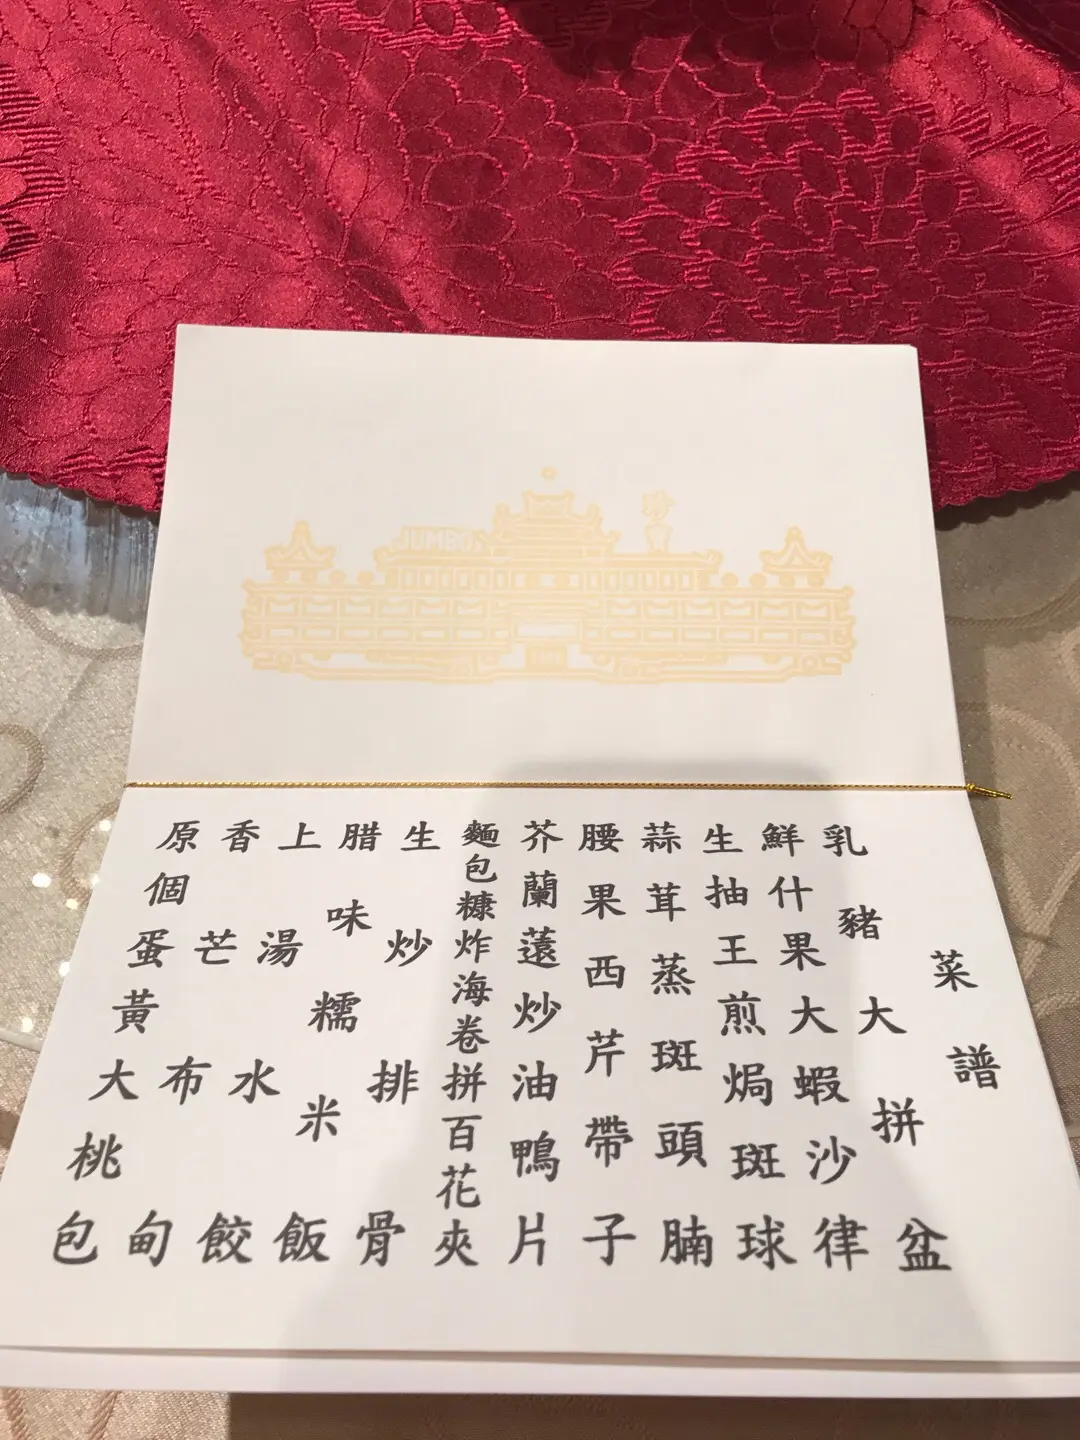 JUMBO
珍
菜譜
乳豬大拼盆
鮮什果大蝦沙律
生抽王煎焗斑球
蒜茸蒸斑頭腩
腰果西芹帶子
芥蘭薳炒油鴨片
麵包糠炸海卷拼百花夾
生炒排骨
腊味糯米飯
上湯水餃
香芒布甸
原個蛋黃大桃包